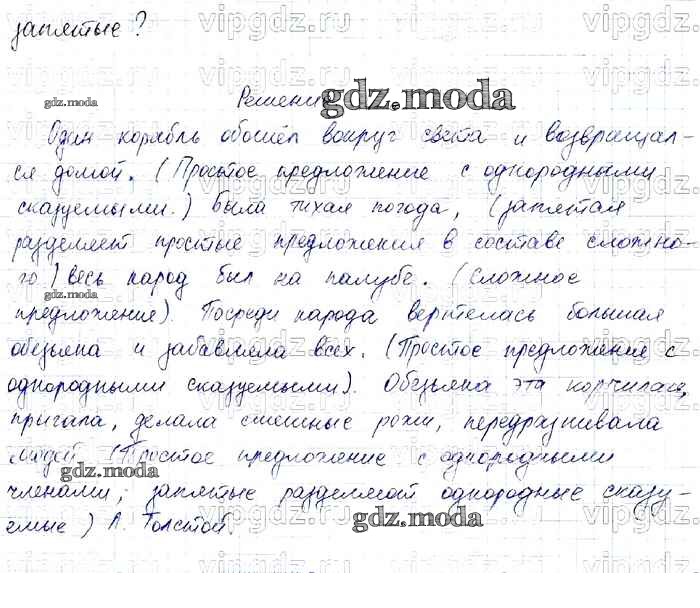 запятые?
Решение
Один корабль обошёл вокруг света и возвращал-
ся домой. (Простое предложение с однородными
сказуемыми.) Была тихая погода, (запятая
разделяет простые предложения в составе сложно-
го) весь народ был на палубе. (Сложное
предложение). Посреди народа вертелась большая
обезьяна и забавляла всех. (Простое предложение с
однородными сказуемыми). Обезьяна эта корчилась,
прыгала, делала смешные рожи, передразнивала
людей. (Простое предложение с однородными
членами; запятые разделяют однородные сказу-
емые) Л. Толстой.